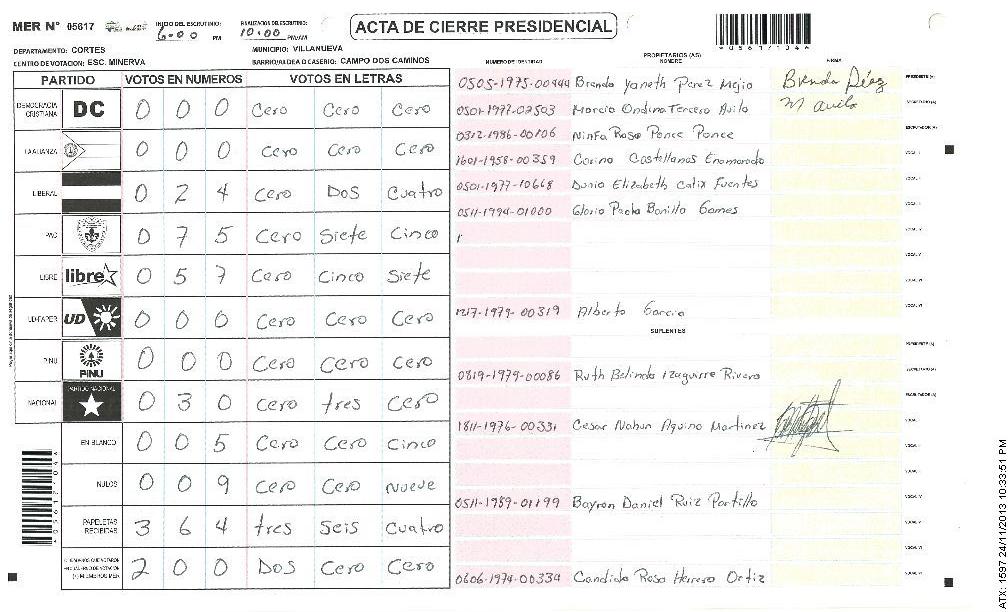 MER N° 05617 INICIO DEL ESCRUTINIO: 6:00 PM FINALIZACION DEL ESCRUTINIO: 10:00 PM/AM ACTA DE CIERRE PRESIDENCIAL
DEPARTAMENTO: CORTES MUNICIPIO: VILLANUEVA
CENTRO DE VOTACION: ESC. MINERVA BARRIO/ALDEA O CASERIO: CAMPO DOS CAMINOS
PARTIDO VOTOS EN NUMEROS VOTOS EN LETRAS
DEMOCRACIA CRISTIANA DC 0 0 0 Cero Cero Cero
LA ALIANZA 0 0 0 Cero Cero Cero
LIBERAL 0 2 4 Cero Dos Cuatro
PAC 0 7 5 Cero Siete Cinco
LIBRE libre 0 5 7 Cero Cinco Siete
UD-FAPER UD 0 0 0 Cero Cero Cero
PINU PINU 0 0 0 Cero Cero Cero
NACIONAL PARTIDO NACIONAL 0 3 0 Cero tres Cero
EN BLANCO 0 0 5 Cero Cero Cinco
NULOS 0 0 9 Cero Cero Nueve
PAPELETAS RECIBIDAS 3 6 4 tres Seis Cuatro
2 0 0 Dos Cero Cero
NUMERO DE IDENTIDAD PROPIETARIOS (AS) NOMBRE FIRMA
0505-1975-00444 Brenda Yaneth Perez Mejia Brenda Pérez PRESIDENTE (A)
0501-1977-02503 Marcia Ondina Tercero Avila M Avila SECRETARIO (A)
0312-1986-00106 Ninfa Rosa Ponce Ponce ESCRUTADOR (A)
1601-1958-00359 Corina Castellanos Enamorado
0501-1977-10668 Dunia Elizabeth Calix Fuentes
0511-1994-01000 Gloria Paola Bonilla Gomes
1217-1979-00319 Alberto Garcia
SUPLENTES
0819-1979-00086 Ruth Belinda Izaguirre Rivera
1811-1976-00331 Cesar Nahun Aquino Martinez
0511-1989-01199 Bayron Daniel Ruiz Portillo
0606-1974-00334 Candida Rosa Herrera Ortiz
ATX: 1597 24/11/2013 10:33:51 PM